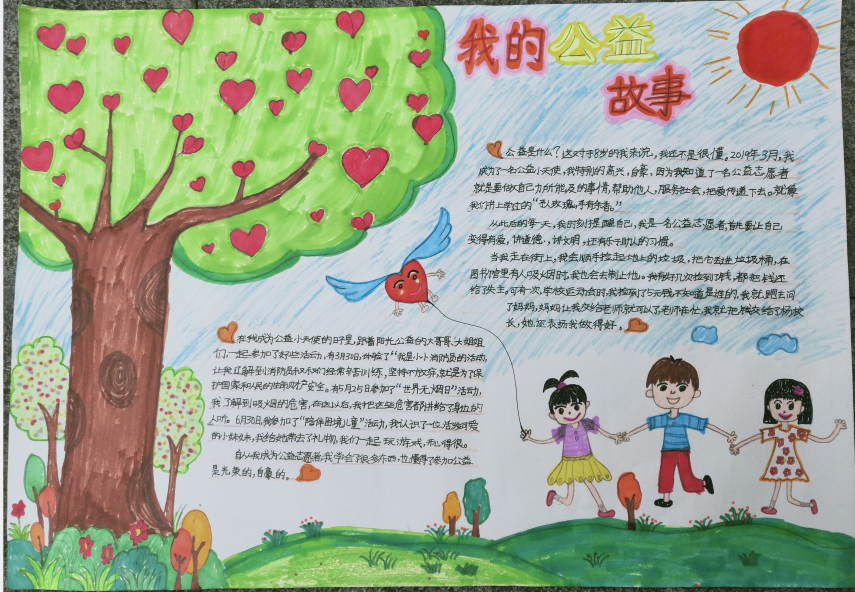 我的公益
故事
公益是什么?这对于8岁的我来说,我还不是很懂。2019年3月,我
成为了一名公益小天使,我特别的高兴,自豪,因为我知道了一名公益志愿者
就是要做自己力所能及的事情,帮助他人,服务社会,把爱传递下去。就像
我们书上学过的“予人玫瑰,手有余香。”
从此后的每一天,我时刻提醒自己,我是一名公益志愿者,首先要让自己
变得有爱,讲道德,讲文明,还有乐于助人的习惯。
当我走在街上,我会顺手捡起地上的垃圾,把它丢进垃圾桶,在
图书馆里有人吸火因时,我也会去制止他。我有好几次捡到钱,都把钱还
给失主,可有一次,学校运动会时,我捡到了5元钱不知道是谁的,我就跑去问
了妈妈,妈妈让我交给老师就可以了,老师在忙,我就把钱交给了杨校
长,她还表扬我做得好。
在我成为公益小天使的日子里,跟着阳光公益的大哥哥、大姐姐
们,一起参加了好些活动,有3月30日,体验了“我是小小消防员的活动,
让我了解到消防员叔叔们经常辛苦训练,坚持不放弃,就是为了保
护国家和人民的生命财产安全。有5月25日参加了“世界无烟日”活动,
我了解到吸火因的危害,在这以后,我把这些危害都讲给了身边的
人听。6月30日,我参加了“陪伴困境儿童”活动,我认识了一位活泼可爱
的小妹妹,我给她带去了礼物,我们一起玩游戏,开心得很。
自从我成为公益志愿者,我学会了很多东西,也懂得了参加公益
是光荣的,自豪的。